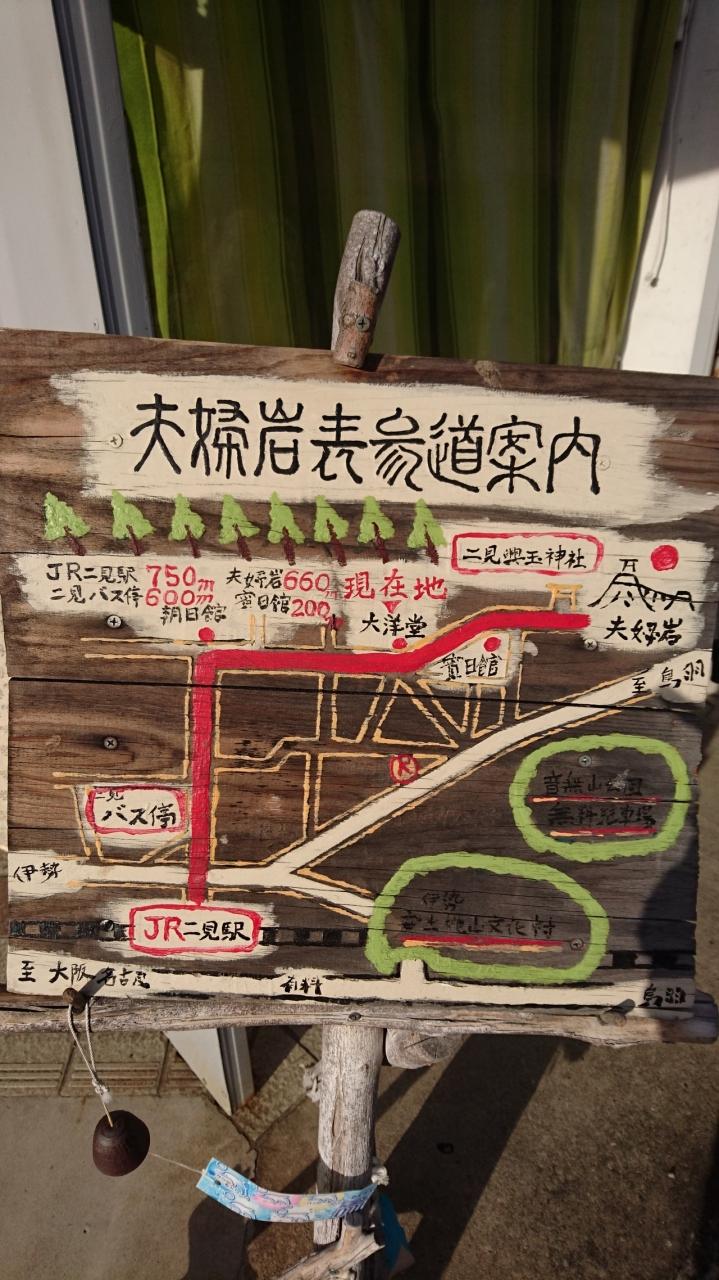 夫婦岩表参道案内
二見興玉神社
JR二見駅 750m 夫婦岩660m 現在地
二見バス停600m 賓日館200m
朝日館
大洋堂
夫婦岩
賓日館
至 鳥羽
R
音無山公園
無料駐車場
二見
バス停
伊勢
伊勢
安土桃山文化村
JR二見駅
至 大阪 名古屋
有料
鳥羽